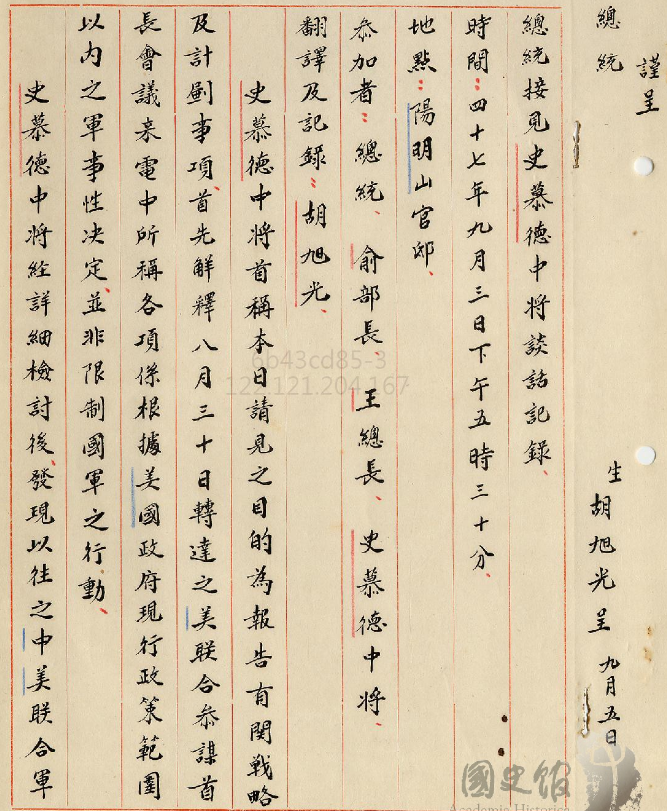 謹呈
總統
生 胡旭光呈 九月五日
總統接見史慕德中將談話記錄、
時間：四十七年九月三日下午五時三十分、
地點：陽明山官邸、
參加者：總統、俞部長、王總長、史慕德中將、
翻譯及記錄：胡旭光、
史慕德中將首稱本日請見之目的為報告有関戰略
及計劃事項、首先解釋八月三十日轉達之美联合参謀首
長會議來電中所稱各項係根據美國政府現行政策範圍
以內之軍事性決定、並非限制國軍之行動、
史慕德中將經詳細檢討後、發現以往之中美联合軍
6b43cd85-3
122.121.204.167
國史館
Academia Historica